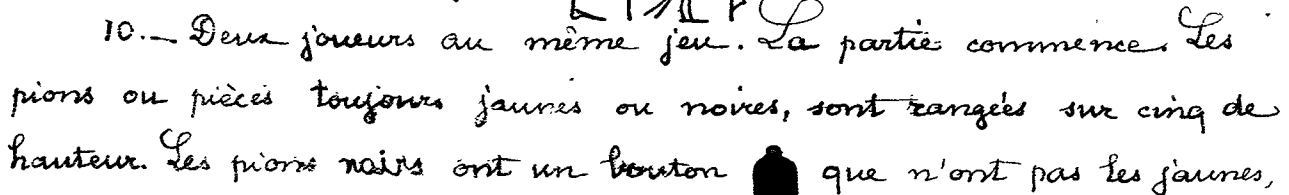 10. — Deux joueurs au même jeu. La partie commence. Les
pions ou pièces toujours jaunes ou noires, sont rangées sur cinq de
hauteur. Les pions noirs ont un bouton que n'ont pas les jaunes,